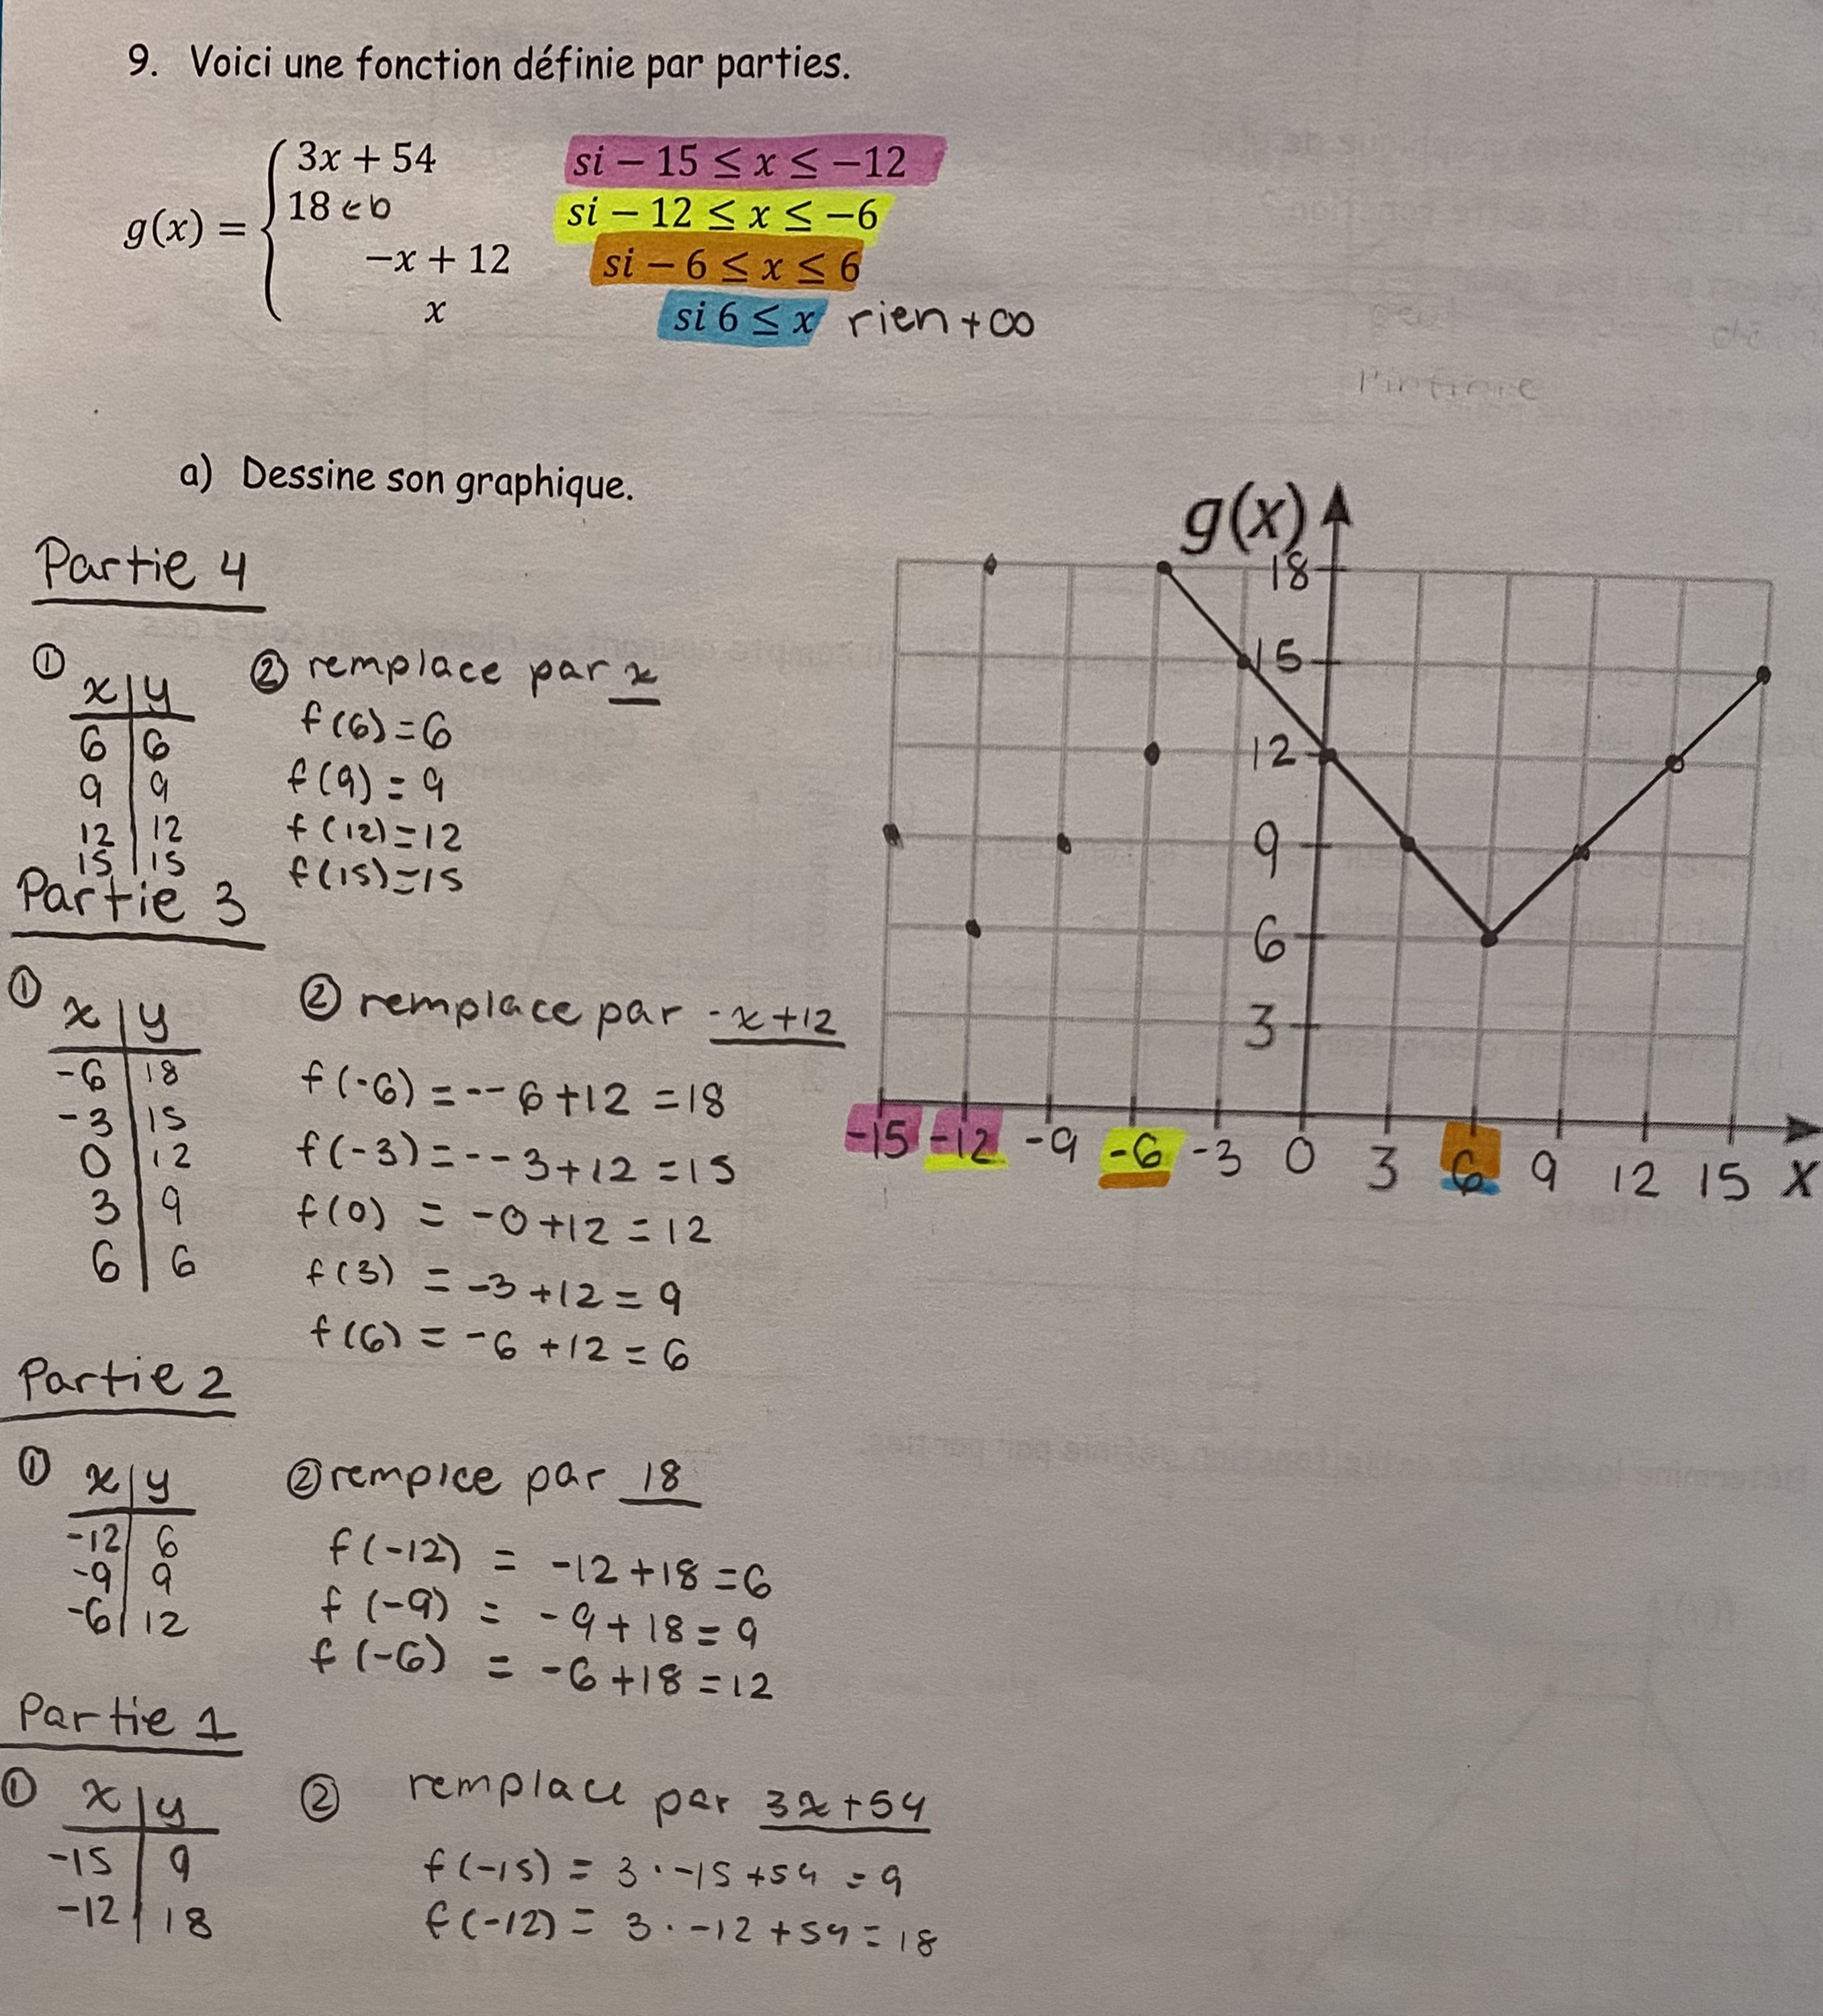 9. Voici une fonction définie par parties.
3x + 54 si − 15 ≤ x ≤ −12
18 ← b si − 12 ≤ x ≤ −6
g(x) =
−x + 12 si − 6 ≤ x ≤ 6
x si 6 ≤ x rien +∞
a) Dessine son graphique.
Partie 4
① x | y
6 | 6
9 | 9
12 | 12
15 | 15
② remplace par x
f(6)=6
f(9) = 9
f(12)=12
f(15)=15
Partie 3
① x | y
-6 | 18
-3 | 15
0 | 12
3 | 9
6 | 6
② remplace par -x+12
f(-6) = --6+12 =18
f(-3) = --3+12 =15
f(0) = -0+12 = 12
f(3) = -3+12 = 9
f(6) = -6+12 = 6
Partie 2
① x | y
-12 | 6
-9 | 9
-6 | 12
② remplce par 18
f(-12) = -12+18 =6
f(-9) = -9+18 = 9
f(-6) = -6+18 =12
Partie 1
① x | y
-15 | 9
-12 | 18
② remplace par 3x+54
f(-15) = 3·-15+54 = 9
f(-12) = 3·-12+54 = 18
g(x)
18
15
12
9
6
3
-15 -12 -9 -6 -3 0 3 6 9 12 15 x